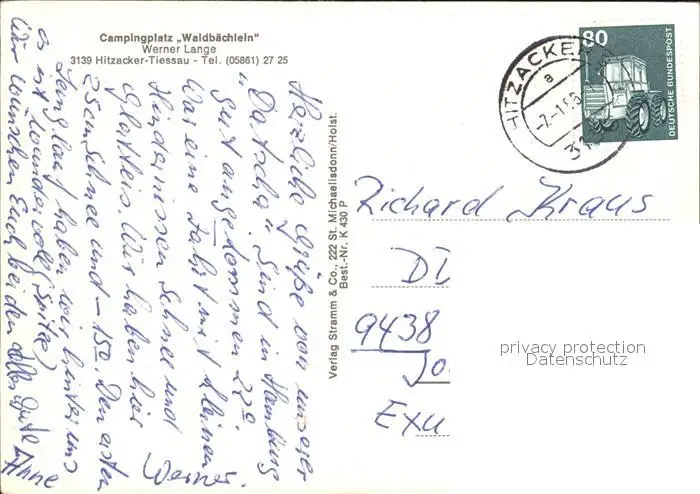 Campingplatz „Waldbächlein"
Werner Lange
3139 Hitzacker-Tiessau - Tel. (05861) 27 25
Herzliche Grüße von unserer
"Datscha". Sind in Hamburg
gut angekommen 22°.
War eine Fahrt mit kleinen
Hindernissen Schnee und
Glatteis. Wir haben hier
25cm Schnee und -15°. Den ersten
Langlauf haben wir hinter uns
es ist wundervoll (Spitze)
Wir wünschen Euch beiden alles Gute
Werner.
Anne
Verlag Stramm & Co., 222 St. Michaelisdonn/Holst.
Best.-Nr. K 430 P
HITZACKER
a
-7.-1.
80
DEUTSCHE BUNDESPOST
Richard Kraus
9438
Exu
privacy protection
Datenschutz